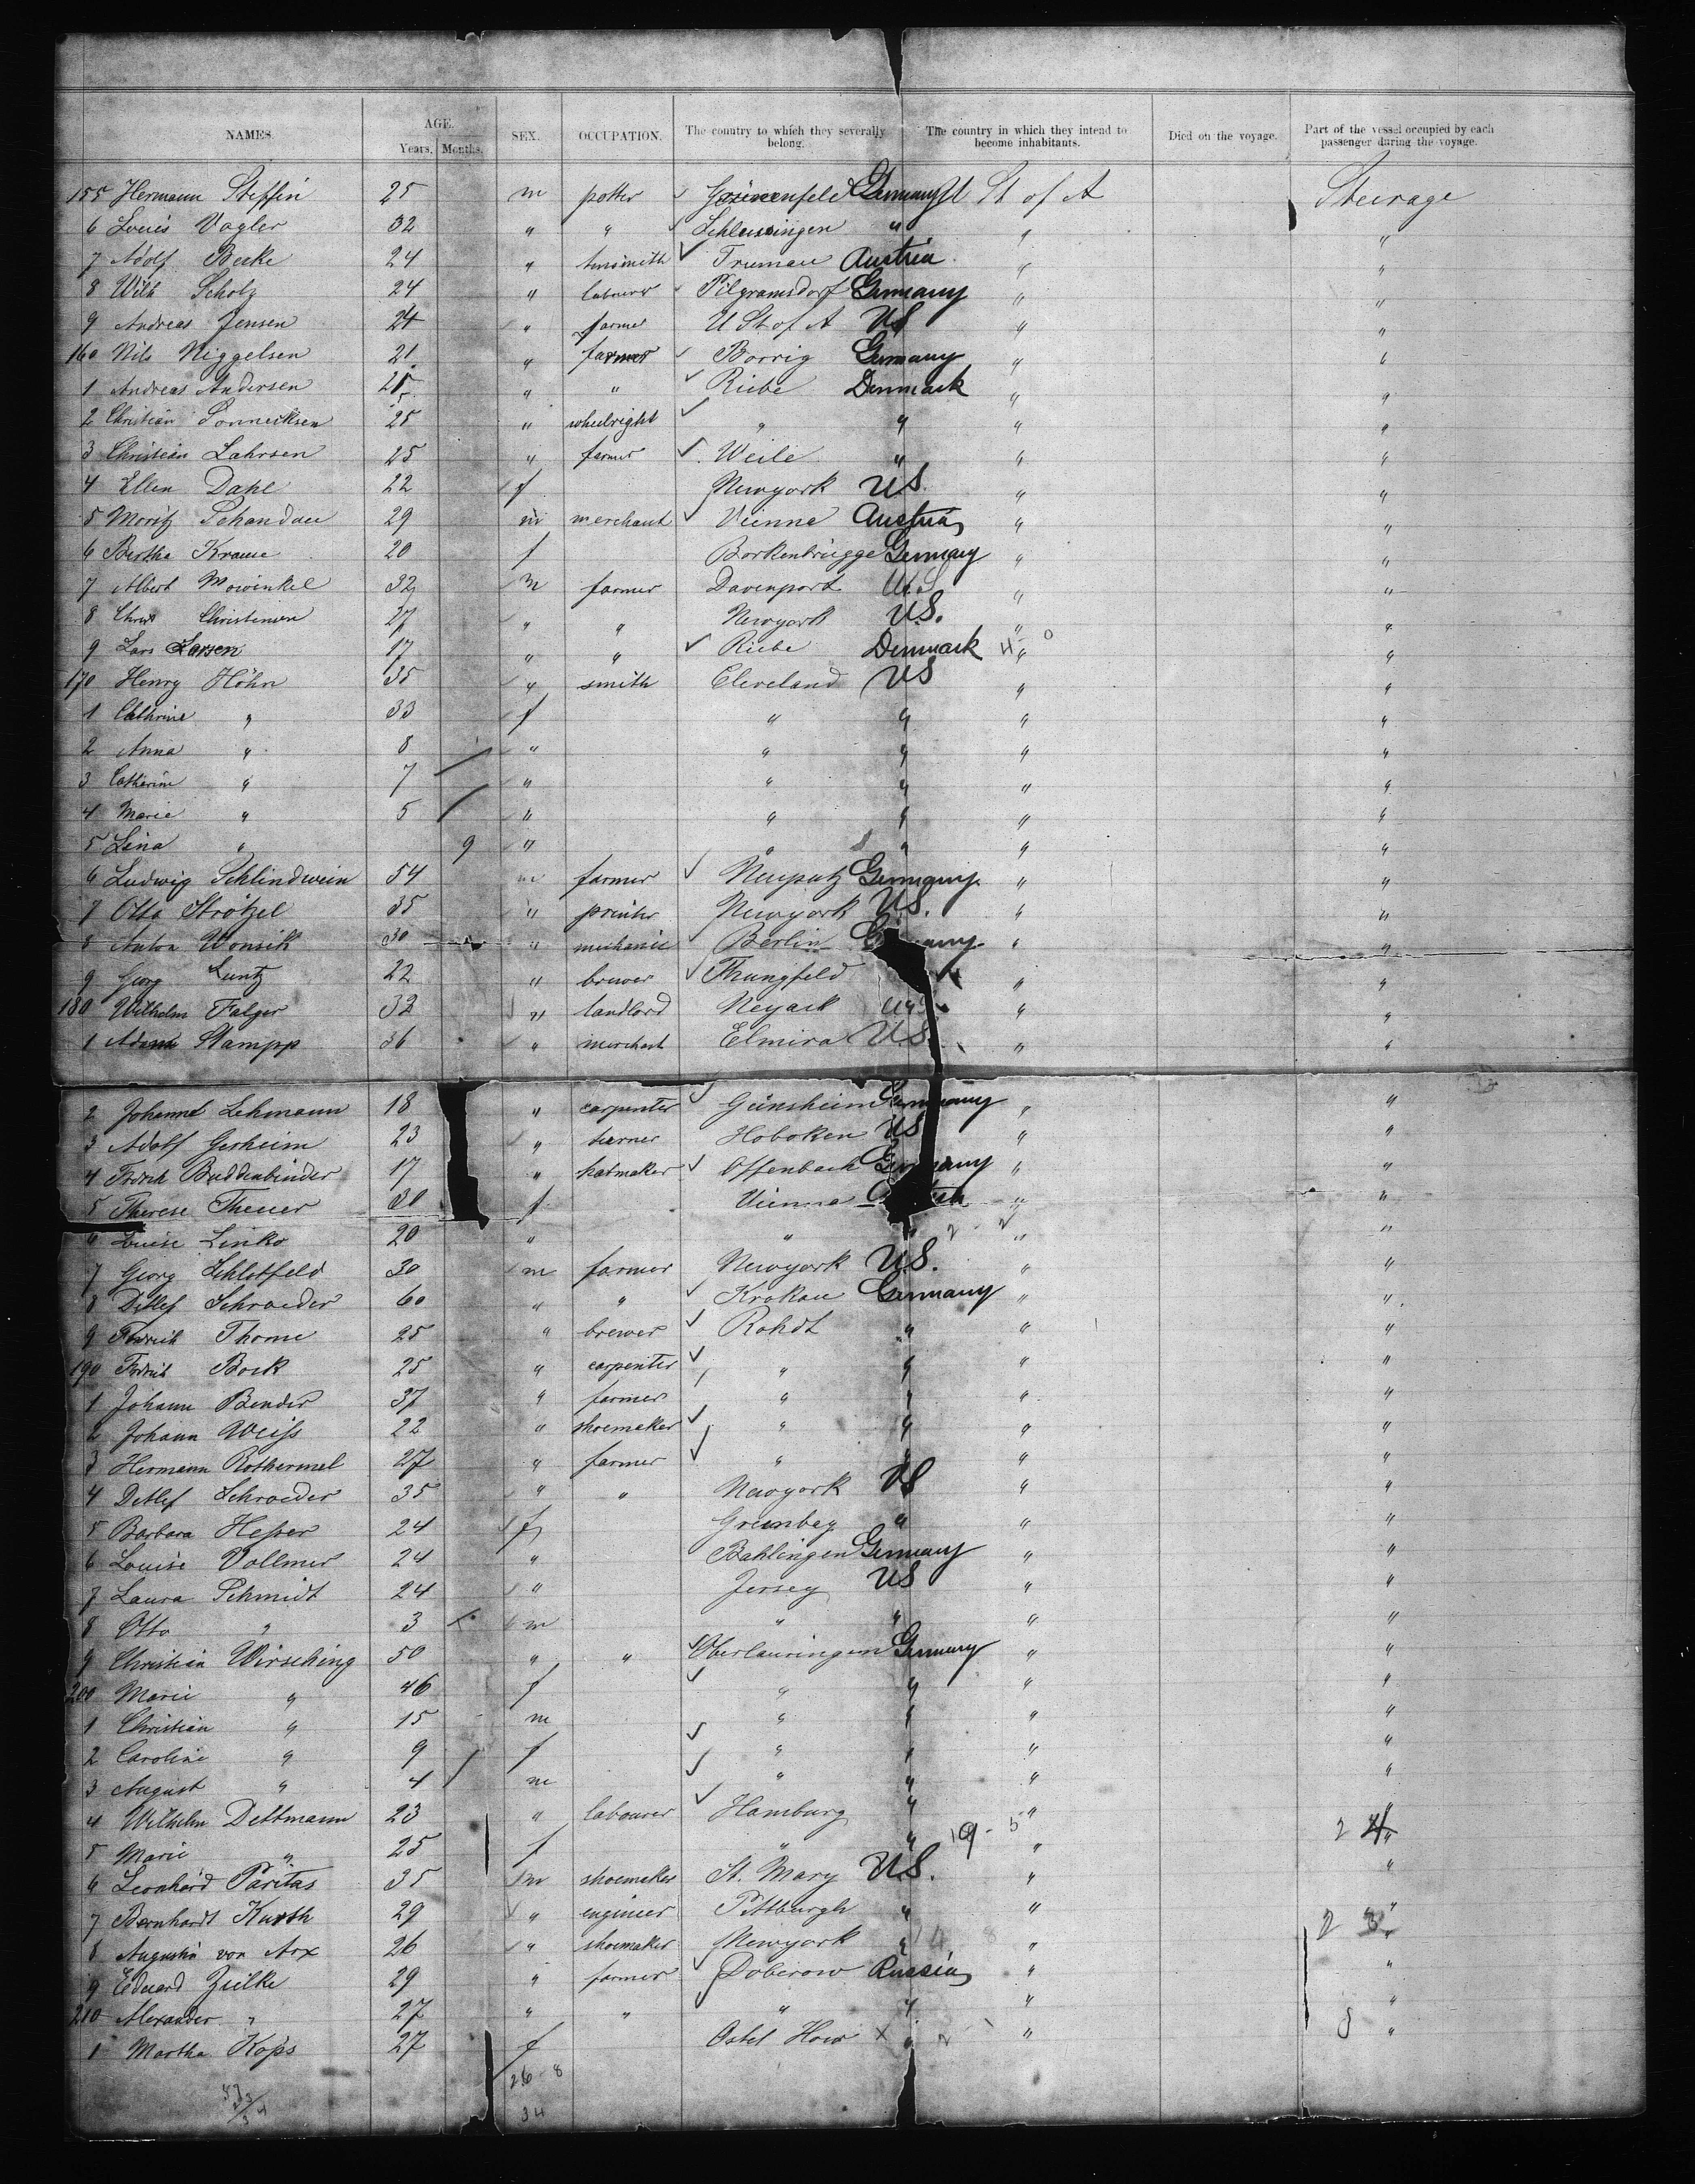 NAMES. AGE. Years. Months. SEX. OCCUPATION. The country to which they severally belong. The country in which they intend to become inhabitants. Died on the voyage. Part of the vessel occupied by each passenger during the voyage.
155 Hermann Steffin 25 m potter Germany U St of A Steerage
6 Louis Vogler 32 " " Schleusingen " " "
7 Adolf Beike 24 " tinsmith Trumau Austria " "
8 Wilh Scholz 24 " labourer Pilgramsdorf Germany " "
9 Andreas Jensen 24 " farmer U St of A US " "
160 Nils Niggelsen 21 " farmer Borrig Germany " "
1 Andreas Andersen " " Riebe Denmark " "
2 Christian Sonnecksen 25 " wheelright " " " "
3 Christian Lahrsen 25 " farmer Weile " " "
4 Ellen Dahl 22 f Newyork US. " "
5 Moritz Schandau 29 m merchant Vienna Austria " "
6 Bertha Krause 20 f Borkenbrügge Germany " "
7 Albert Mowinkel 32 m farmer Davenport U.S " "
8 Christ Christensen 27 " " Newyork U.S. " "
9 Lars Larsen 17 " " Riebe Denmark " "
170 Henry Höhn 35 " smith Cleveland US " "
1 Cathrine " 33 f " " " "
2 Anna " 8 " " " " "
3 Catherine " 7 " " " " "
4 Marie " 5 " " " " "
5 Lina " 9 " " " " "
6 Ludwig Schlindwein 54 m farmer Neupotz Germany " "
7 Otto Strötzel 35 " printer Newyork U.S. " "
8 Anton Wonsik 30 " mechanic Berlin " "
9 Georg Luntz 22 " brewer Thungfeld " "
180 Wilhelm Falger 32 " landlord " "
1 Adam Stampp 36 " merchant Elmira U.S. " "
2 Johannes Lehmann 18 " carpenter Geinsheim Germany " "
3 Adolf Gerheim 23 " turner Hoboken US " "
4 Fridrich Buddenbinder 17 " hatmaker Offenbach Germany " "
5 Therese Theuer 30 f Vienna " "
6 Luise Linko 20 " " " "
7 Georg Schlotfeld 30 m farmer Newyork U.S. " "
8 Detlef Schroeder 60 " " Krokau Germany " "
9 Fridrich Thome 25 " brewer Rohdt " " "
190 Fridrich Bock 25 " carpenter " " " "
1 Johann Bender 37 " farmer " " " "
2 Johann Weiss 22 " shoemaker " " " "
3 Hermann Rothermel 27 " farmer " " " "
4 Detlef Schroeder 35 " " Newyork US " "
5 Barbara Hesser 24 f Greenbay " " "
6 Louise Vollmer 24 " Bahlingen Germany " "
7 Laura Schmidt 24 " Jersey US " "
8 Otto " 3 m " " " "
9 Christian Wirsching 50 " " Oberlauringen Germany " "
200 Marie " 46 f " " " "
1 Christian " 15 m " " " "
2 Caroline " 9 f " " " "
3 August " 4 m " " " "
4 Wilhelm Dettmann 23 " labourer Hamburg " " "
5 Marie " 25 f " " 19 - 5 " 2 4 "
6 Leonhard Paritas 35 m shoemaker St. Mary U.S. " "
7 Bernhardt Kurth 29 " engineer Pittburgh " " "
8 Augustin von Arx 26 " shoemaker Newyork " " 2 3 "
9 Eduard Zielke 29 " farmer Doberow Russia " "
210 Alexander " 27 " " " " " "
1 Martha Kops 27 f " " 8 "
26 8
34